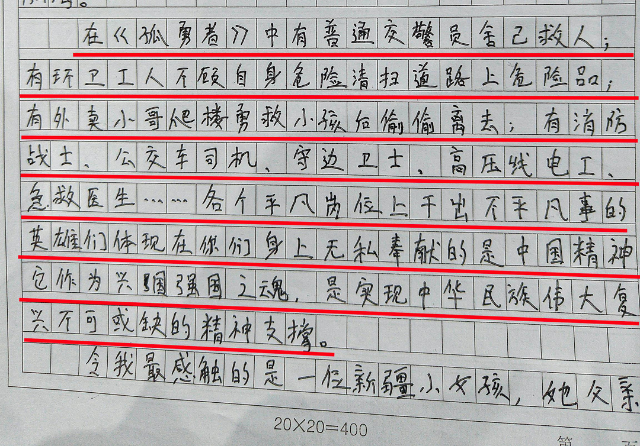 在《孤勇者》中有普通交警员舍己救人；
有环卫工人不顾自身危险清扫道路上危险品；
有外卖小哥爬楼勇救小孩后偷偷离去；有消防
战士、公交车司机、守边卫士、高压线电工、
急救医生……各个平凡岗位上干出不平凡事的
英雄们体现在你们身上无私奉献的是中国精神
它作为兴国强国之魂，是实现中华民族伟大复
兴不可或缺的精神支撑。
令我最感触的是一位新疆小女孩，她父亲
20×20=400
第